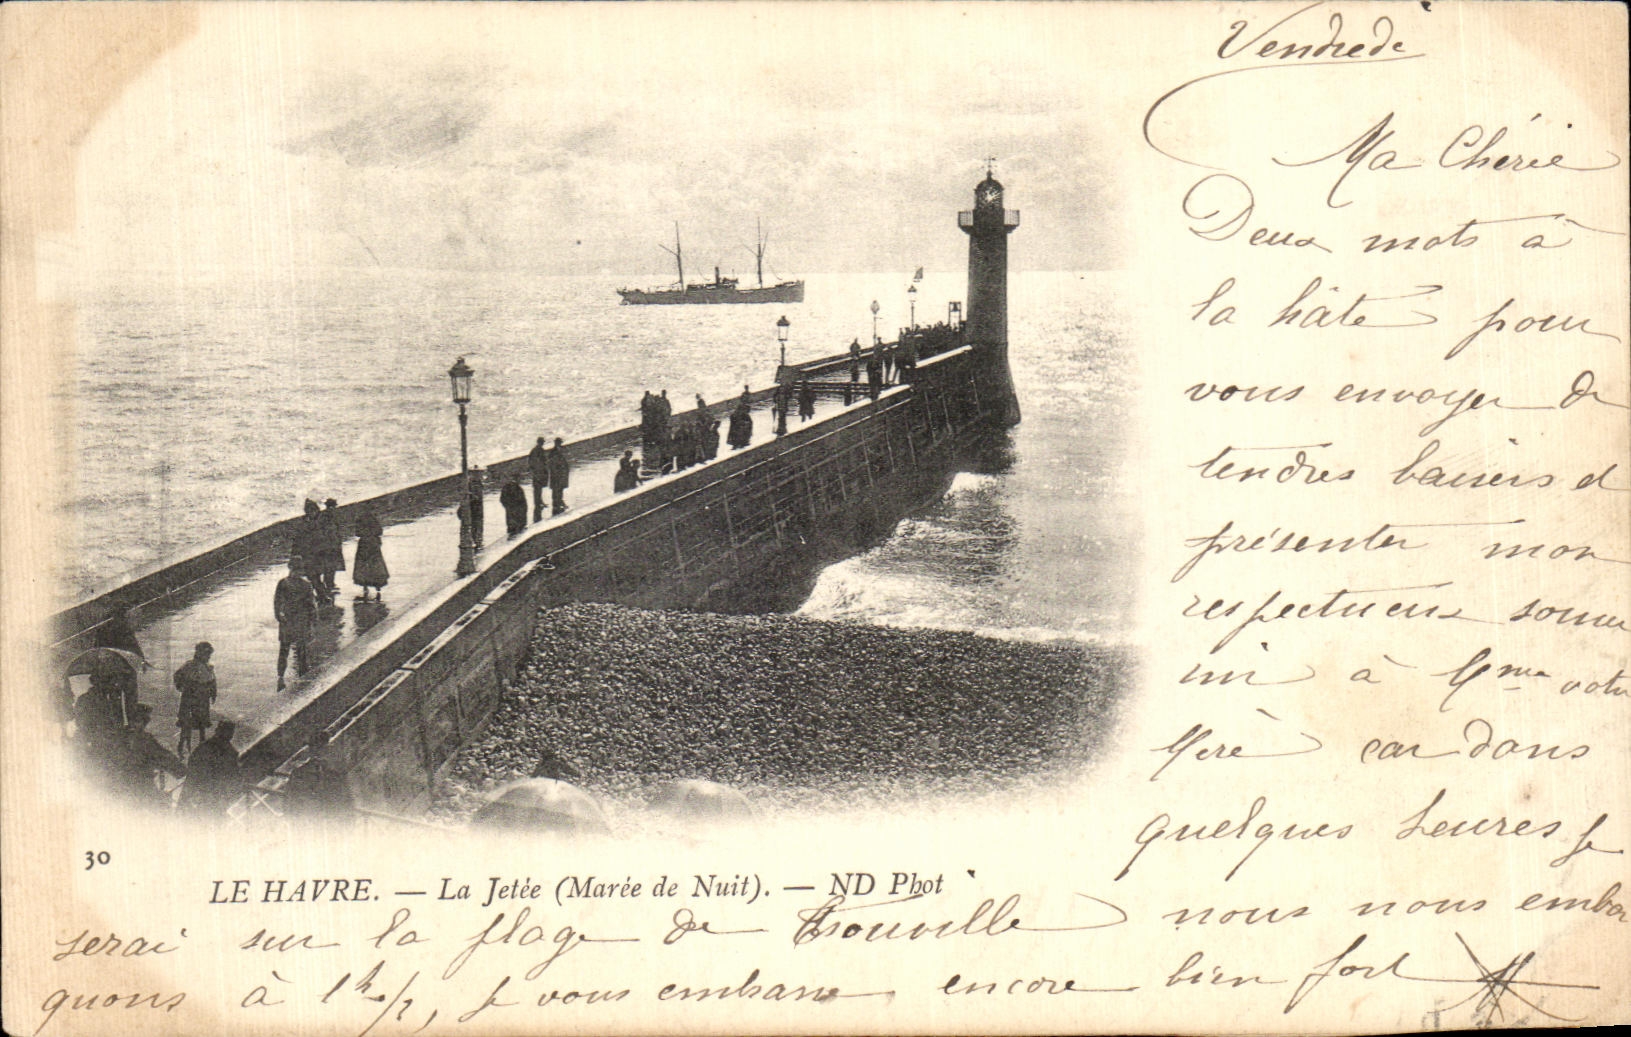 Vendredi
Ma Chérie
Deux mots à
la hâte pour
vous envoyer de
tendres baisers et
présenter mon
respectueux souve
nir à Mme votre
Mère car dans
quelques heures je
serai sur la plage de Trouville nous nous embar
quons à 1h 1/2, je vous embrasse encore bien fort
30
LE HAVRE. — La Jetée (Marée de Nuit). — ND Phot